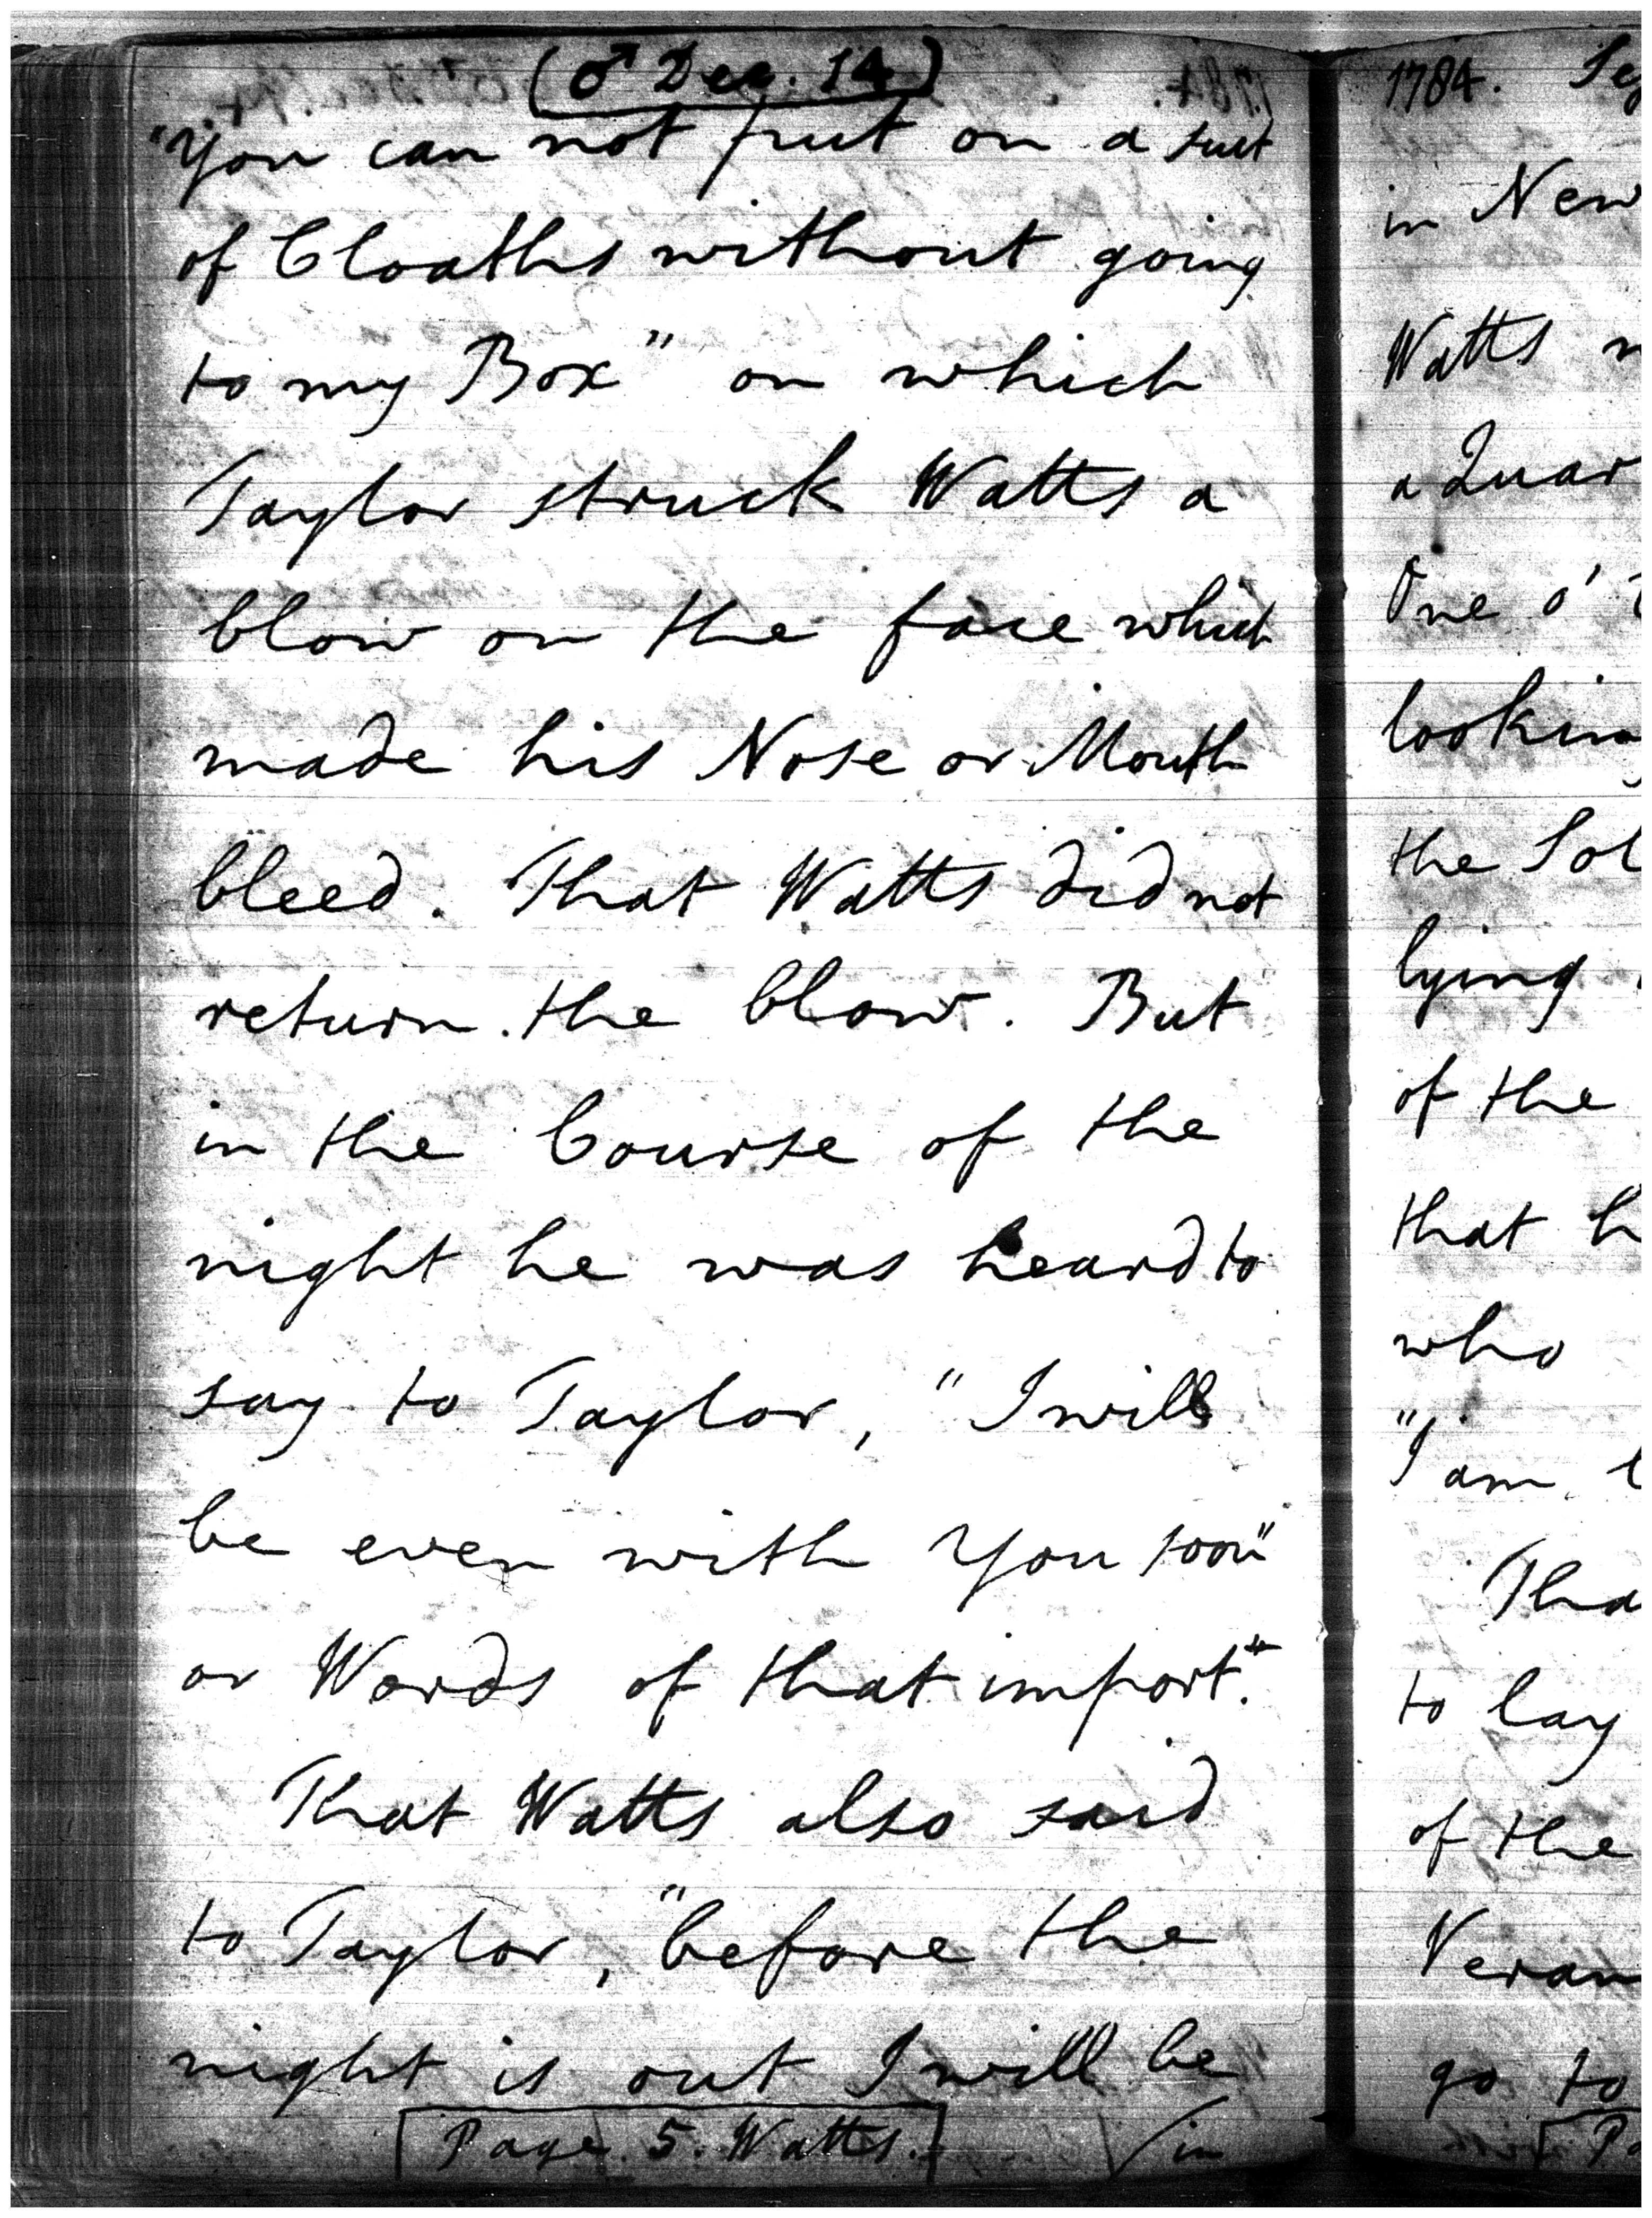 (♂ Dec. 14)
"You can not put on a suit
of Cloaths without going
to my Box" on which
Taylor struck Watts a
blow on the face which
made his Nose or Mouth
bleed. That Watts did not
return the blow. But
in the Course of the
night he was heard to
say to Taylor, "I will
be even with You soon"
or Words of that import."
That Watts also said
to Taylor, "before the
night is out I will be
[Page. 5. Watts.]
/in
1784.
in New
Watts
a Quar
One o'
looking
the Sol
lying
of the
that h
who
"I am
Tha
to lay
of the
Veran
go to
[Pa